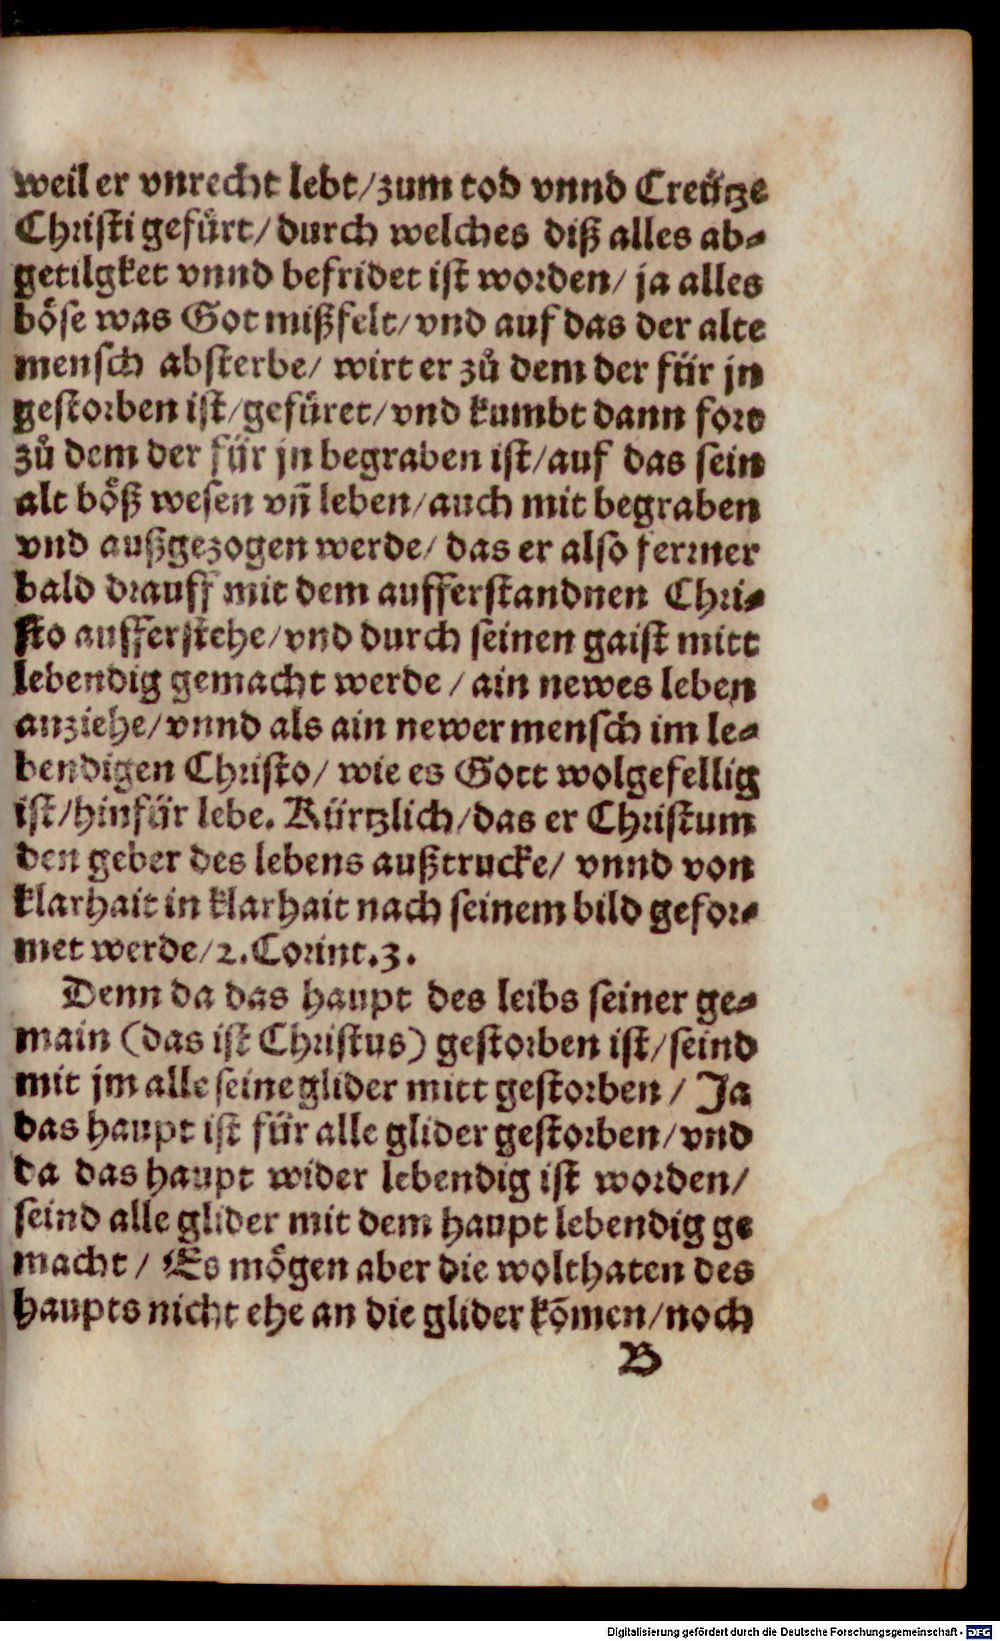 weil er vnrecht lebt/zum tod vnnd Creütze
Christi gefürt/durch welches diß alles ab-
getilgket vnnd befridet ist worden/ ja alles
böse was Got mißfelt/vnd auf das der alte
mensch absterbe/ wirt er zů dem der für jn
gestorben ist/gefüret/vnd kumbt dann fort
zů dem der für jn begraben ist/auf das sein
alt böß wesen vñ leben/auch mit begraben
vnd außgezogen werde/ das er also ferrner
bald drauff mit dem aufferstandnen Chri-
sto aufferstehe/vnd durch seinen gaist mitt
lebendig gemacht werde / ain newes leben
anziehe/vnnd als ain newer mensch im le-
bendigen Christo/ wie es Gott wolgefellig
ist/hinfür lebe. Kürtzlich/das er Christum
den geber des lebens außtrucke/ vnnd von
klarhait in klarhait nach seinem bild gefor-
met werde/2.Corint.3.
Denn da das haupt des leibs seiner ge-
main (das ist Christus) gestorben ist/seind
mit jm alle seine glider mitt gestorben / Ja
das haupt ist für alle glider gestorben/vnd
da das haupt wider lebendig ist worden/
seind alle glider mit dem haupt lebendig ge
macht / Es mögen aber die wolthaten des
haupts nicht ehe an die glider kõmen/noch
B
Digitalisierung gefördert durch die Deutsche Forschungsgemeinschaft - DFG